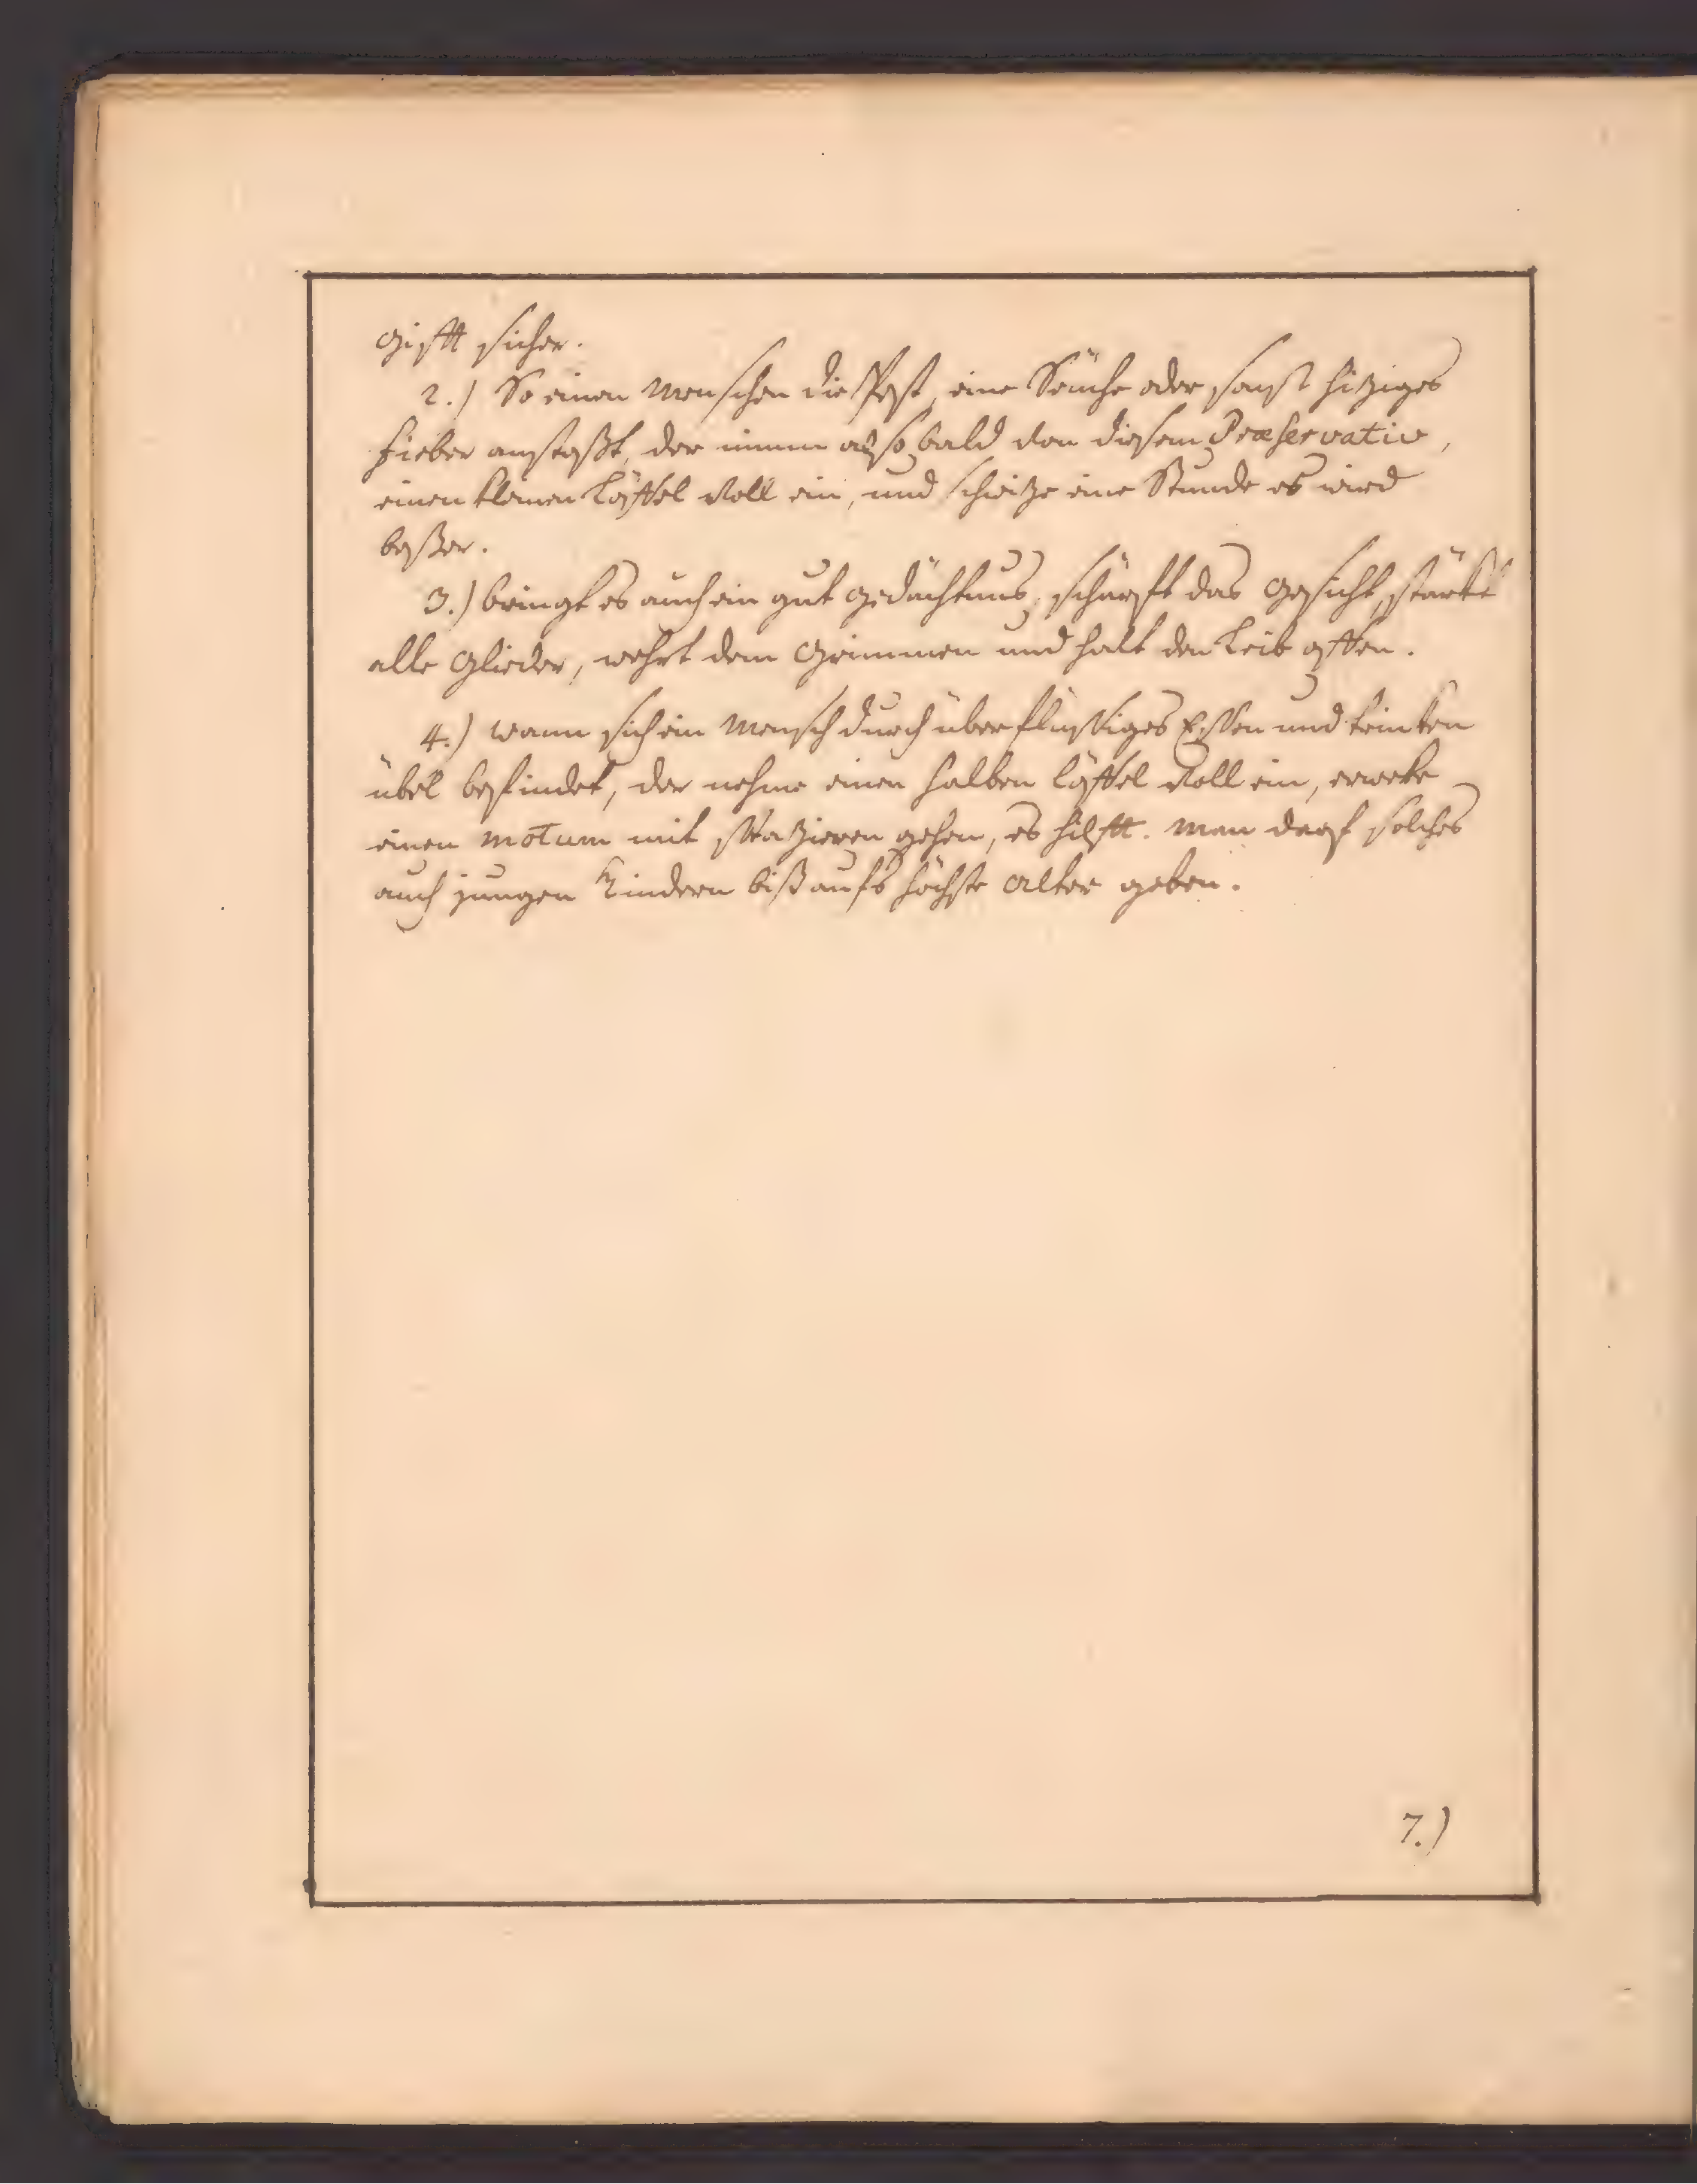 Gifft sicher.
2.) So einen Menschen die Pest, eine Seüche oder sonst hitziges
Fieber anstosst, der nimm also bald von diesem Præservativ,
einen kleinen Löffel voll ein, und schwitze eine Stunde es wird
beßer.
3.) bringt es auch ein gut Gedächtnus, schärfft das Gesicht, stärkt
alle Glieder, wehrt dem Grimmen und halt den Leib offen.
4.) wann sich ein Mensch durch überflüssiges Essen und trinken
übel befindet, der nehme einen halben löffel voll ein, erweke
einen motum mit spatzieren gehen, es hilfft. Man darf solches
auch jungen Kindern biß aufs höchste Alter geben.
7.)